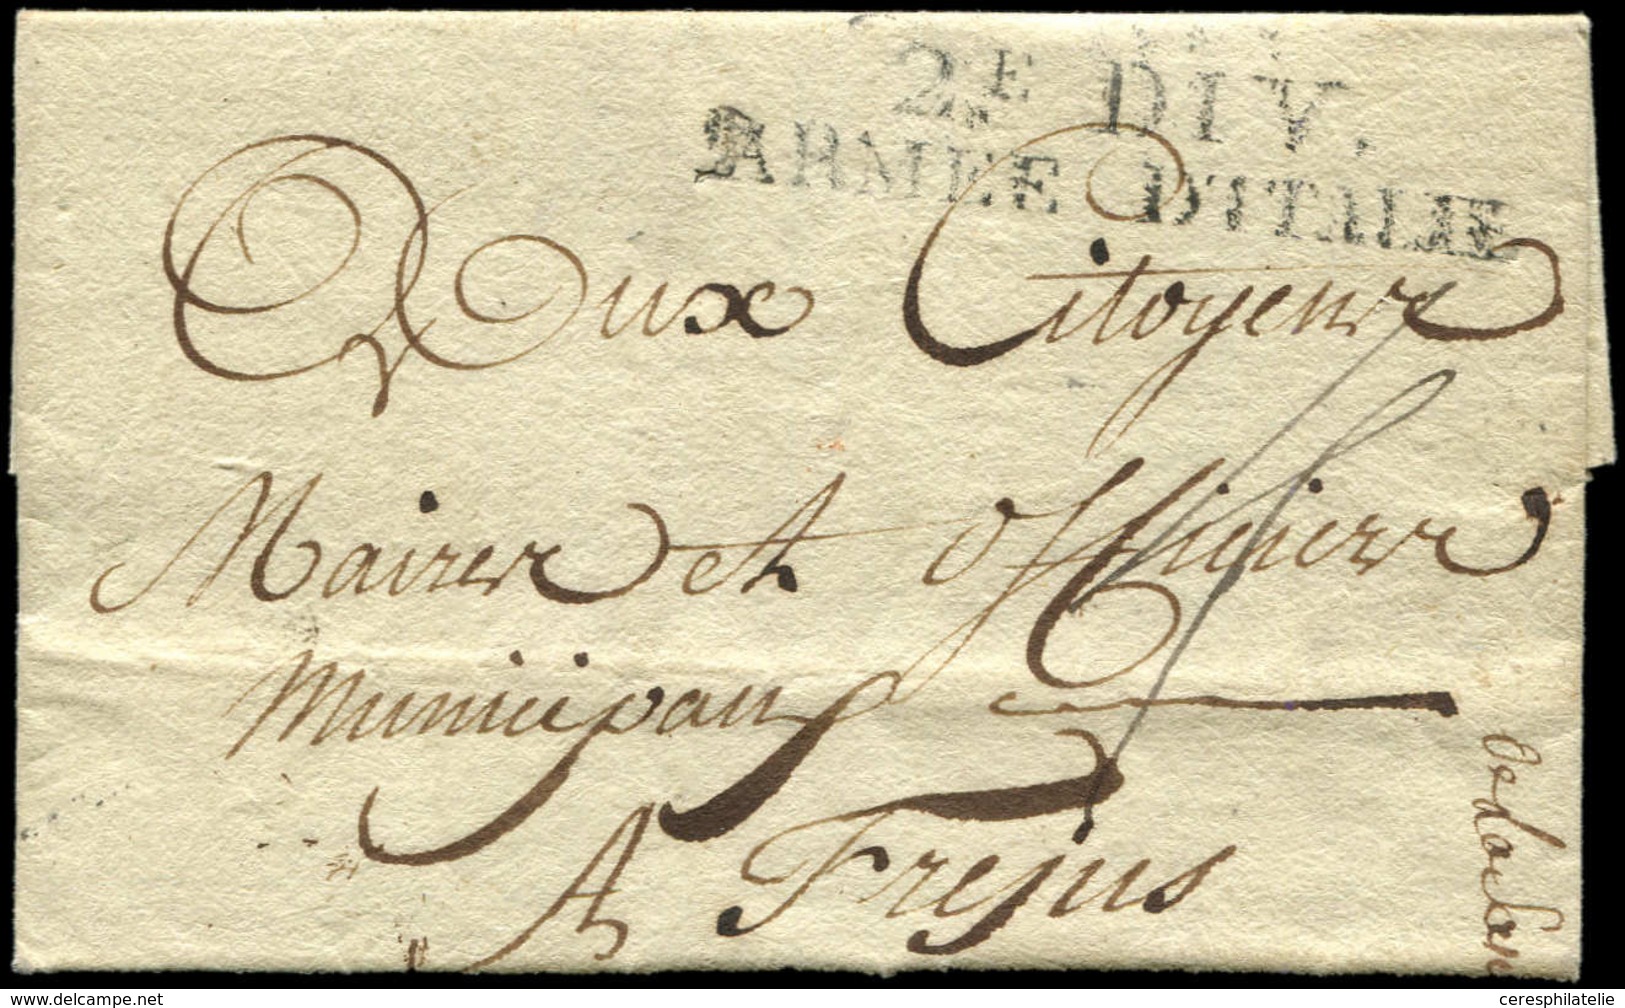 2E DIV.
ARMÉE D'ITALIE
Aux Citoyens
Maires et officiers
Municipaux
A Frejus
De Toulon
www.delcampe.net
ceresphilatelie